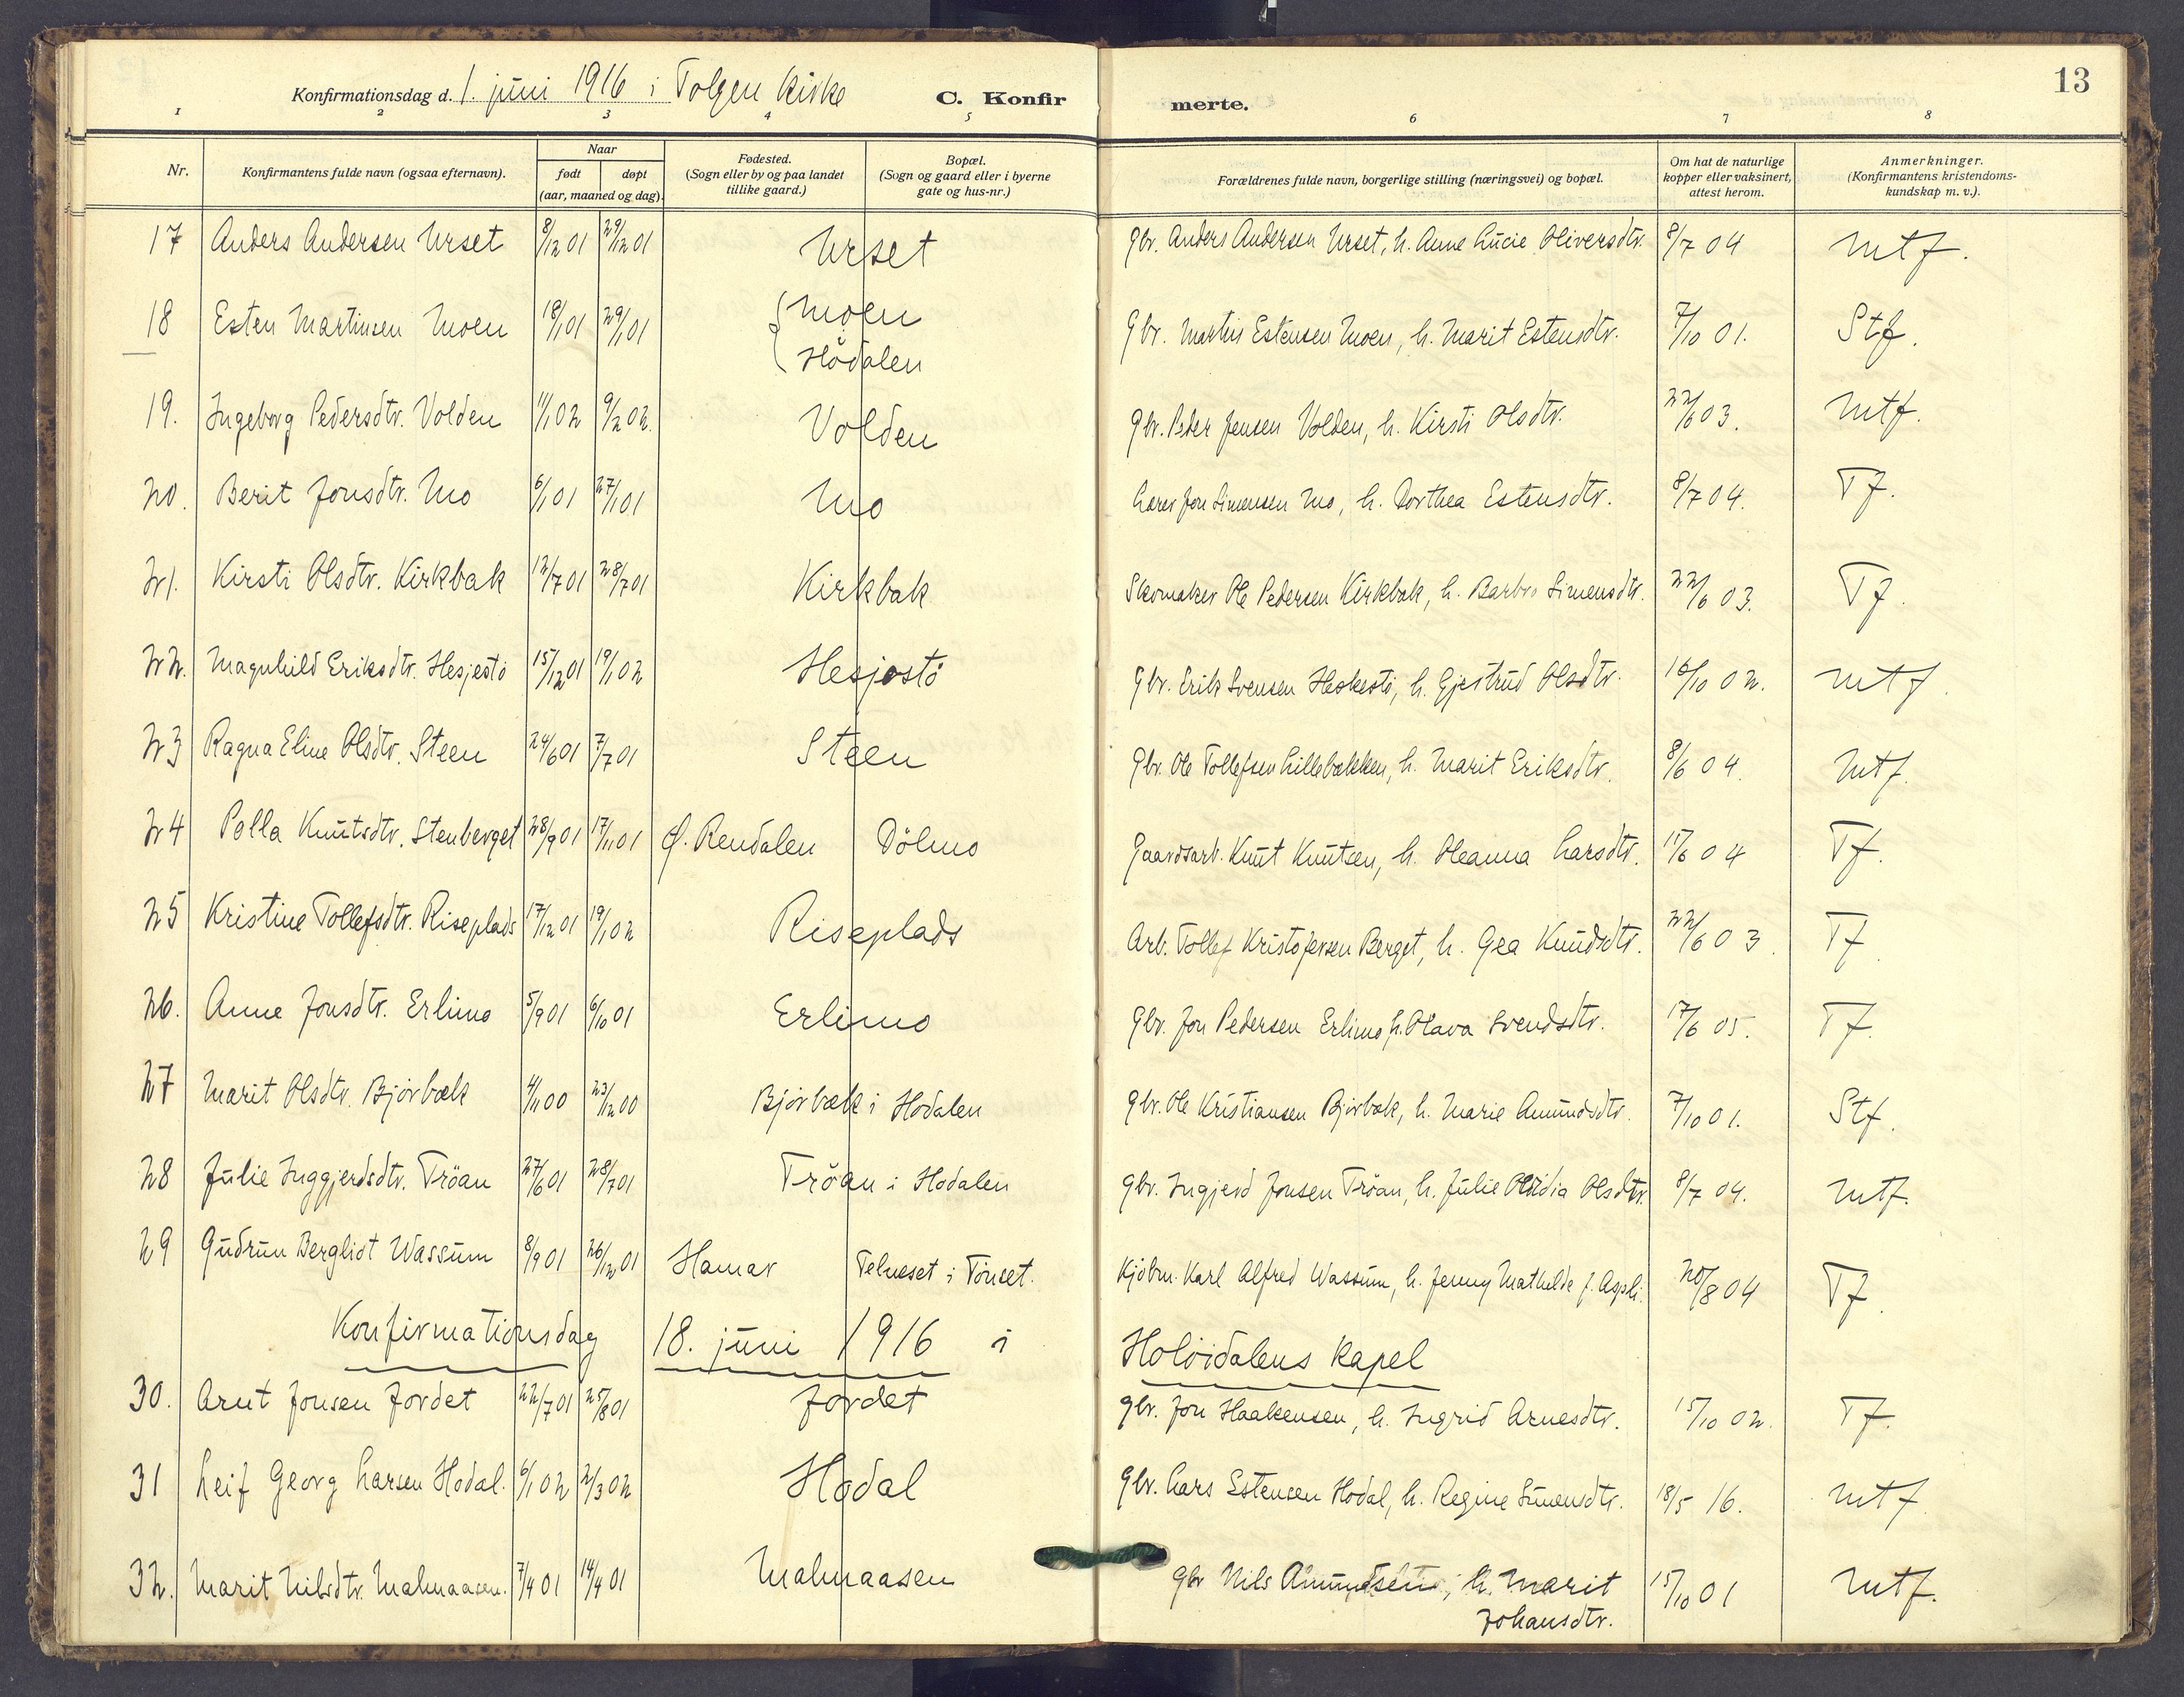 Konfirmationsdag d. 1. juni 1916 i Tolgen Kirke C. Konfirmerte. 13
1 2 3 4 5 6 7 8
Nr. | Konfirmantens fulde navn (ogsaa efternavn). | Naar født døpt (aar, maaned og dag) | Fødested. (Sogn eller by og paa landet tillike gaard.) | Bopæl. (Sogn og gaard eller i byerne gate og hus-nr.) | Forældrenes fulde navn, borgerlige stilling (næringsvei) og bopæl. | Om hat de naturlige kopper eller vaksinert, attest herom. | Anmerkninger. (Konfirmantens kristendomskundskap m. v.).
17 Anders Andersen Urset 8/12 01 29/12 01 Urset Gbr. Anders Andersen Urset, h. Anne Lucie Oliversdtr. 8/7 04 Mtf.
18 Esten Martinsen Moen 18/1 01 29/1 01 Moen Gbr. Martin Estensen Moen, h. Marit Estensdtr. 7/10 01. Stf.
Hodalen
19. Ingeborg Pedersdtr. Volden 11/1 02 9/2 02. Volden Gbr. Peder Jensen Volden, h. Kirsti Olsdtr. 22/6 03. Mtf.
20. Berit Jonsdtr. Mo 6/1 01 27/1 01 Mo Lærer Jon Simensen Mo, h. Dorthea Estensdtr. 8/7 04. Tf.
21. Kirsti Olsdtr. Kirkbak 12/7 01 28/7 01 Kirkbak Skomaker Ole Pedersen Kirkbak, h. Barbro Simensdtr. 22/6 03. Tf.
22. Magnhild Eriksdtr. Hesjestö 15/12 01 19/1 02 Hesjestö Gbr. Erik Svensen Heskestö, h. Gjertrud Olsdtr. 16/10 02. Mtf.
23 Ragna Eline Olsdtr. Steen 24/6 01 7/7 01 Steen Gbr. Ole Tollefsen Lillebakken, h. Marit Eriksdtr. 8/6 04. Mtf.
24 Palla Knutsdtr. Stenberget 28/9 01 17/11 01 Ø. Rendalen Dölmo Gaardsarb. Knut Knutsen, h. Oleanna Larsdtr. 17/6 04 Tf.
25 Kristine Tollefsdtr. Riseplads 17/12 01 19/1 02 Riseplads Arb. Tollef Kristofersen Berget, h. Gea Knudsdtr. 22/6 03. Tf.
26. Anne Jonsdtr. Erlimo 5/9 01 6/10 01 Erlimo Gbr. Jon Pedersen Erlimo h. Olava Svendsdtr. 17/6 05. Tf.
27 Marit Olsdtr. Björbæk 4/11 00 23/12 00 Björbæk i Hodalen Gbr. Ole Kristiansen Björbæk, h. Marie Amundsdtr. 7/10 01. Stf.
28 Julie Inggjerdsdtr. Tröan 27/6 01 28/7 01 Tröan i Hodalen Gbr. Ingjerd Jonsen Tröan, h. Julie Olsdtr. 8/7 04. Mtf.
29 Gudrun Bergliot Wassum 8/9 01 26/12 01 Hamar Telneset i Tönset. Kjöbm. Karl Alfred Wassum, h. Jenny Mathilde f. Aspli. 20/8 04 Tf.
Konfirmationsdag 18. juni 1916 i Holöidalens Kapel
30. Arnt Jonsen Jordet 22/7 01 25/8 01 Jordet Gbr. Jon Haakensen, h. Ingrid Arnesdtr. 15/10 02. Tf.
31 Leif Georg Larsen Hodal. 6/1 02 2/3 02 Hodal Gbr. Lars Estensen Hodal, h. Regine Simensdtr. 18/5 16. Mtf
32. Marit Nilsdtr. Malmaasen. 7/4 01 14/4 01 Malmaasen Gbr Nils Amundsen, h. Marit 15/10 01 Mtf.
Johansdtr.